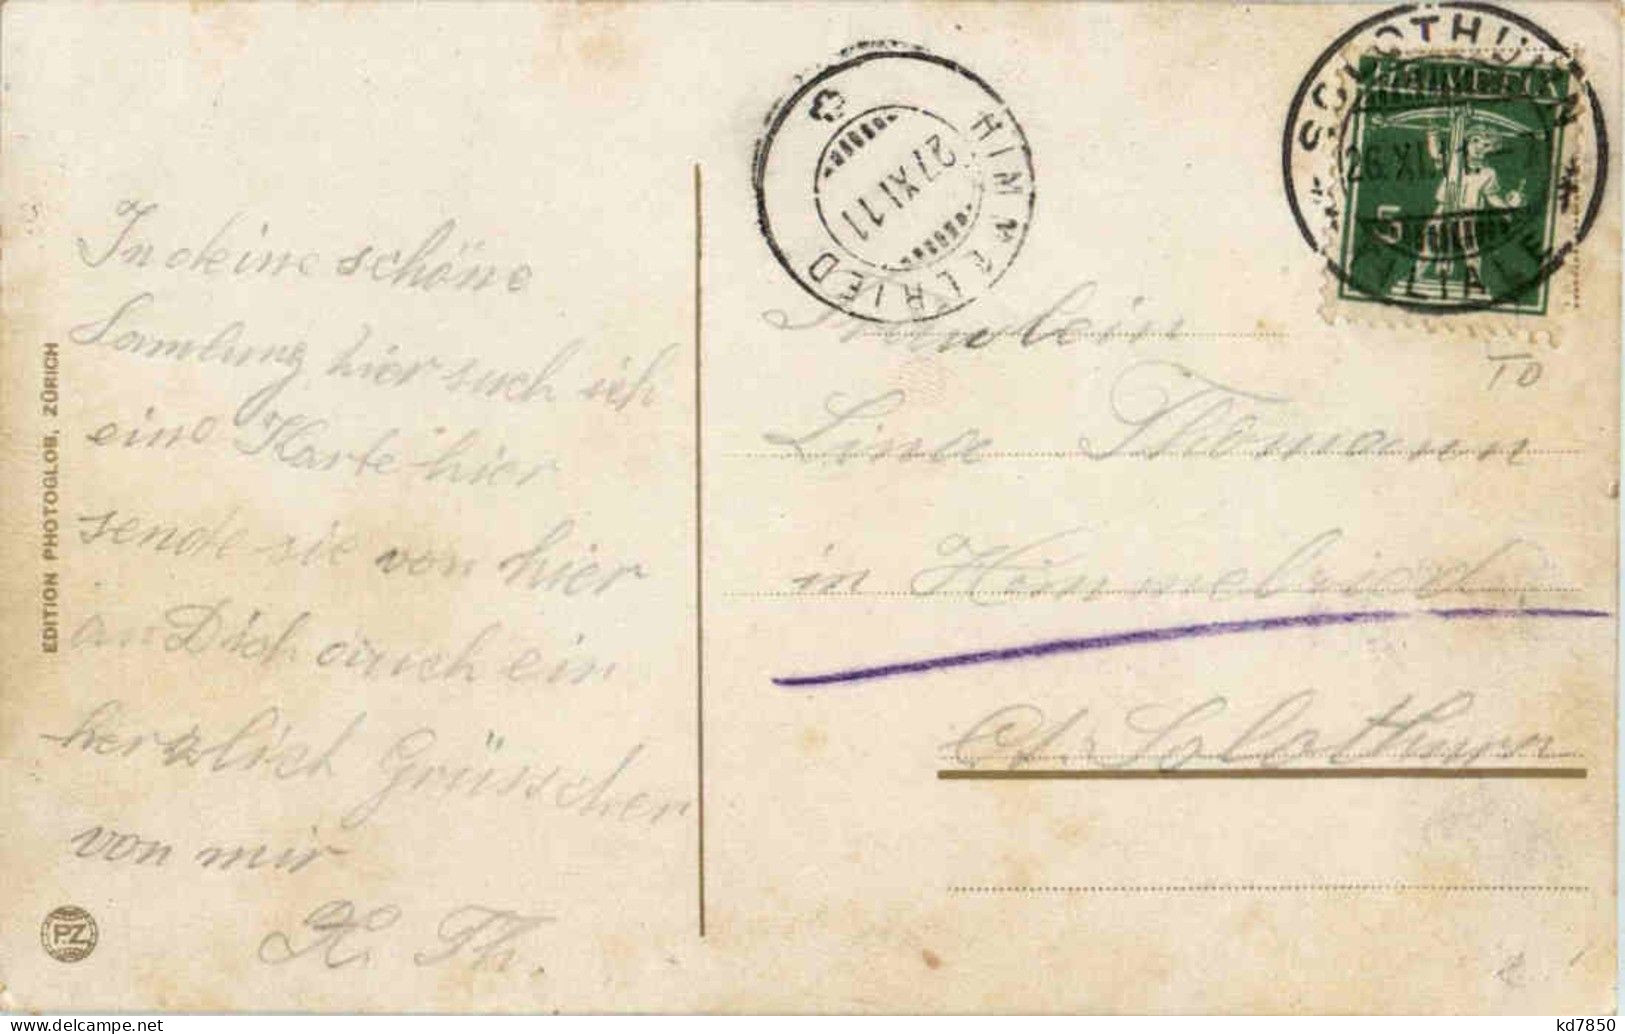 In deine schöne
Samlung hier such ich
eine Karte hier
sende sie von hier
an Dich auch ein
herzlich Grüsschen
von mir
Th.
EDITION PHOTOGLOB, ZÜRICH
PZ
HIMMELRIED
27 XI 11
SOLOTHURN
26. XI. 11.
FILIALE
5
Fräulein
Lina Thomann
in Himmelried
Ct. Solothurn
TD
kd7850